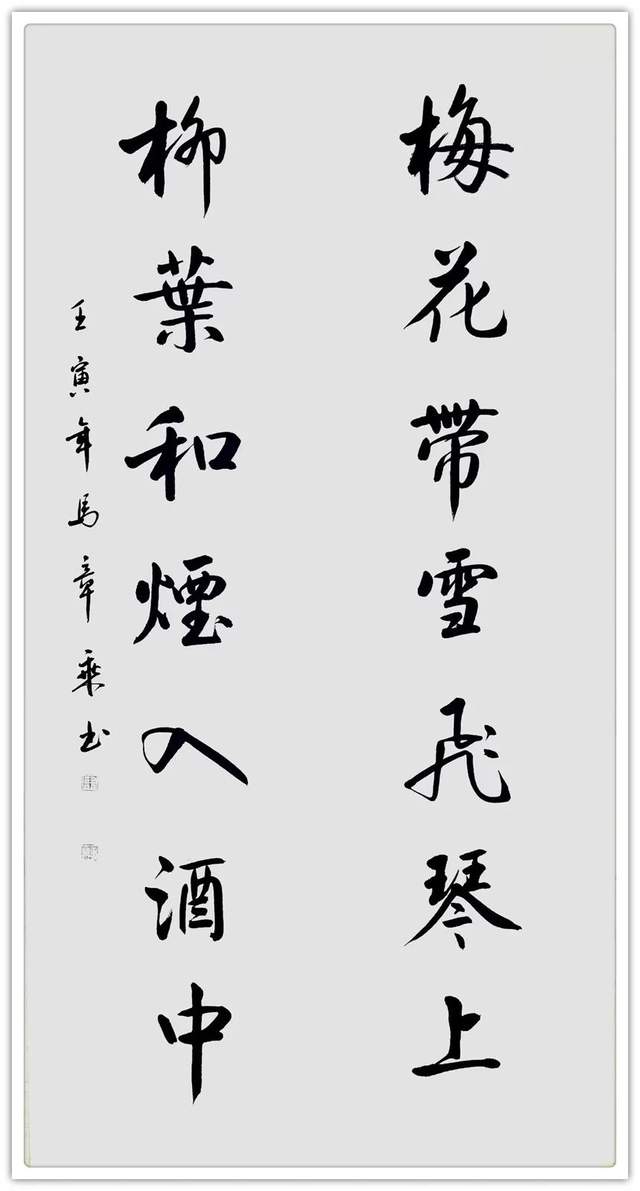 梅花帶雪飛琴上
柳葉和煙入酒中
壬寅年馬章乘书